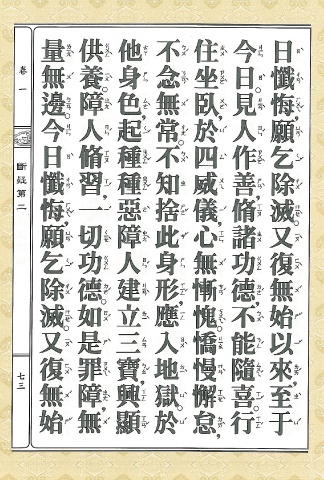 日懺悔。願乞除滅。又復無始以來。至于
今日。見人作善。脩諸功德。不能隨喜。行
住坐臥。於四威儀。心無慚愧。憍慢懈怠。
不念無常。不知捨此身形。應入地獄。於
他身色。起種種惡。障人建立三寶。興顯
供養。障人脩習。一切功德。如是罪障。無
量無邊。今日懺悔。願乞除滅。又復無始
卷一
斷疑第二
七三